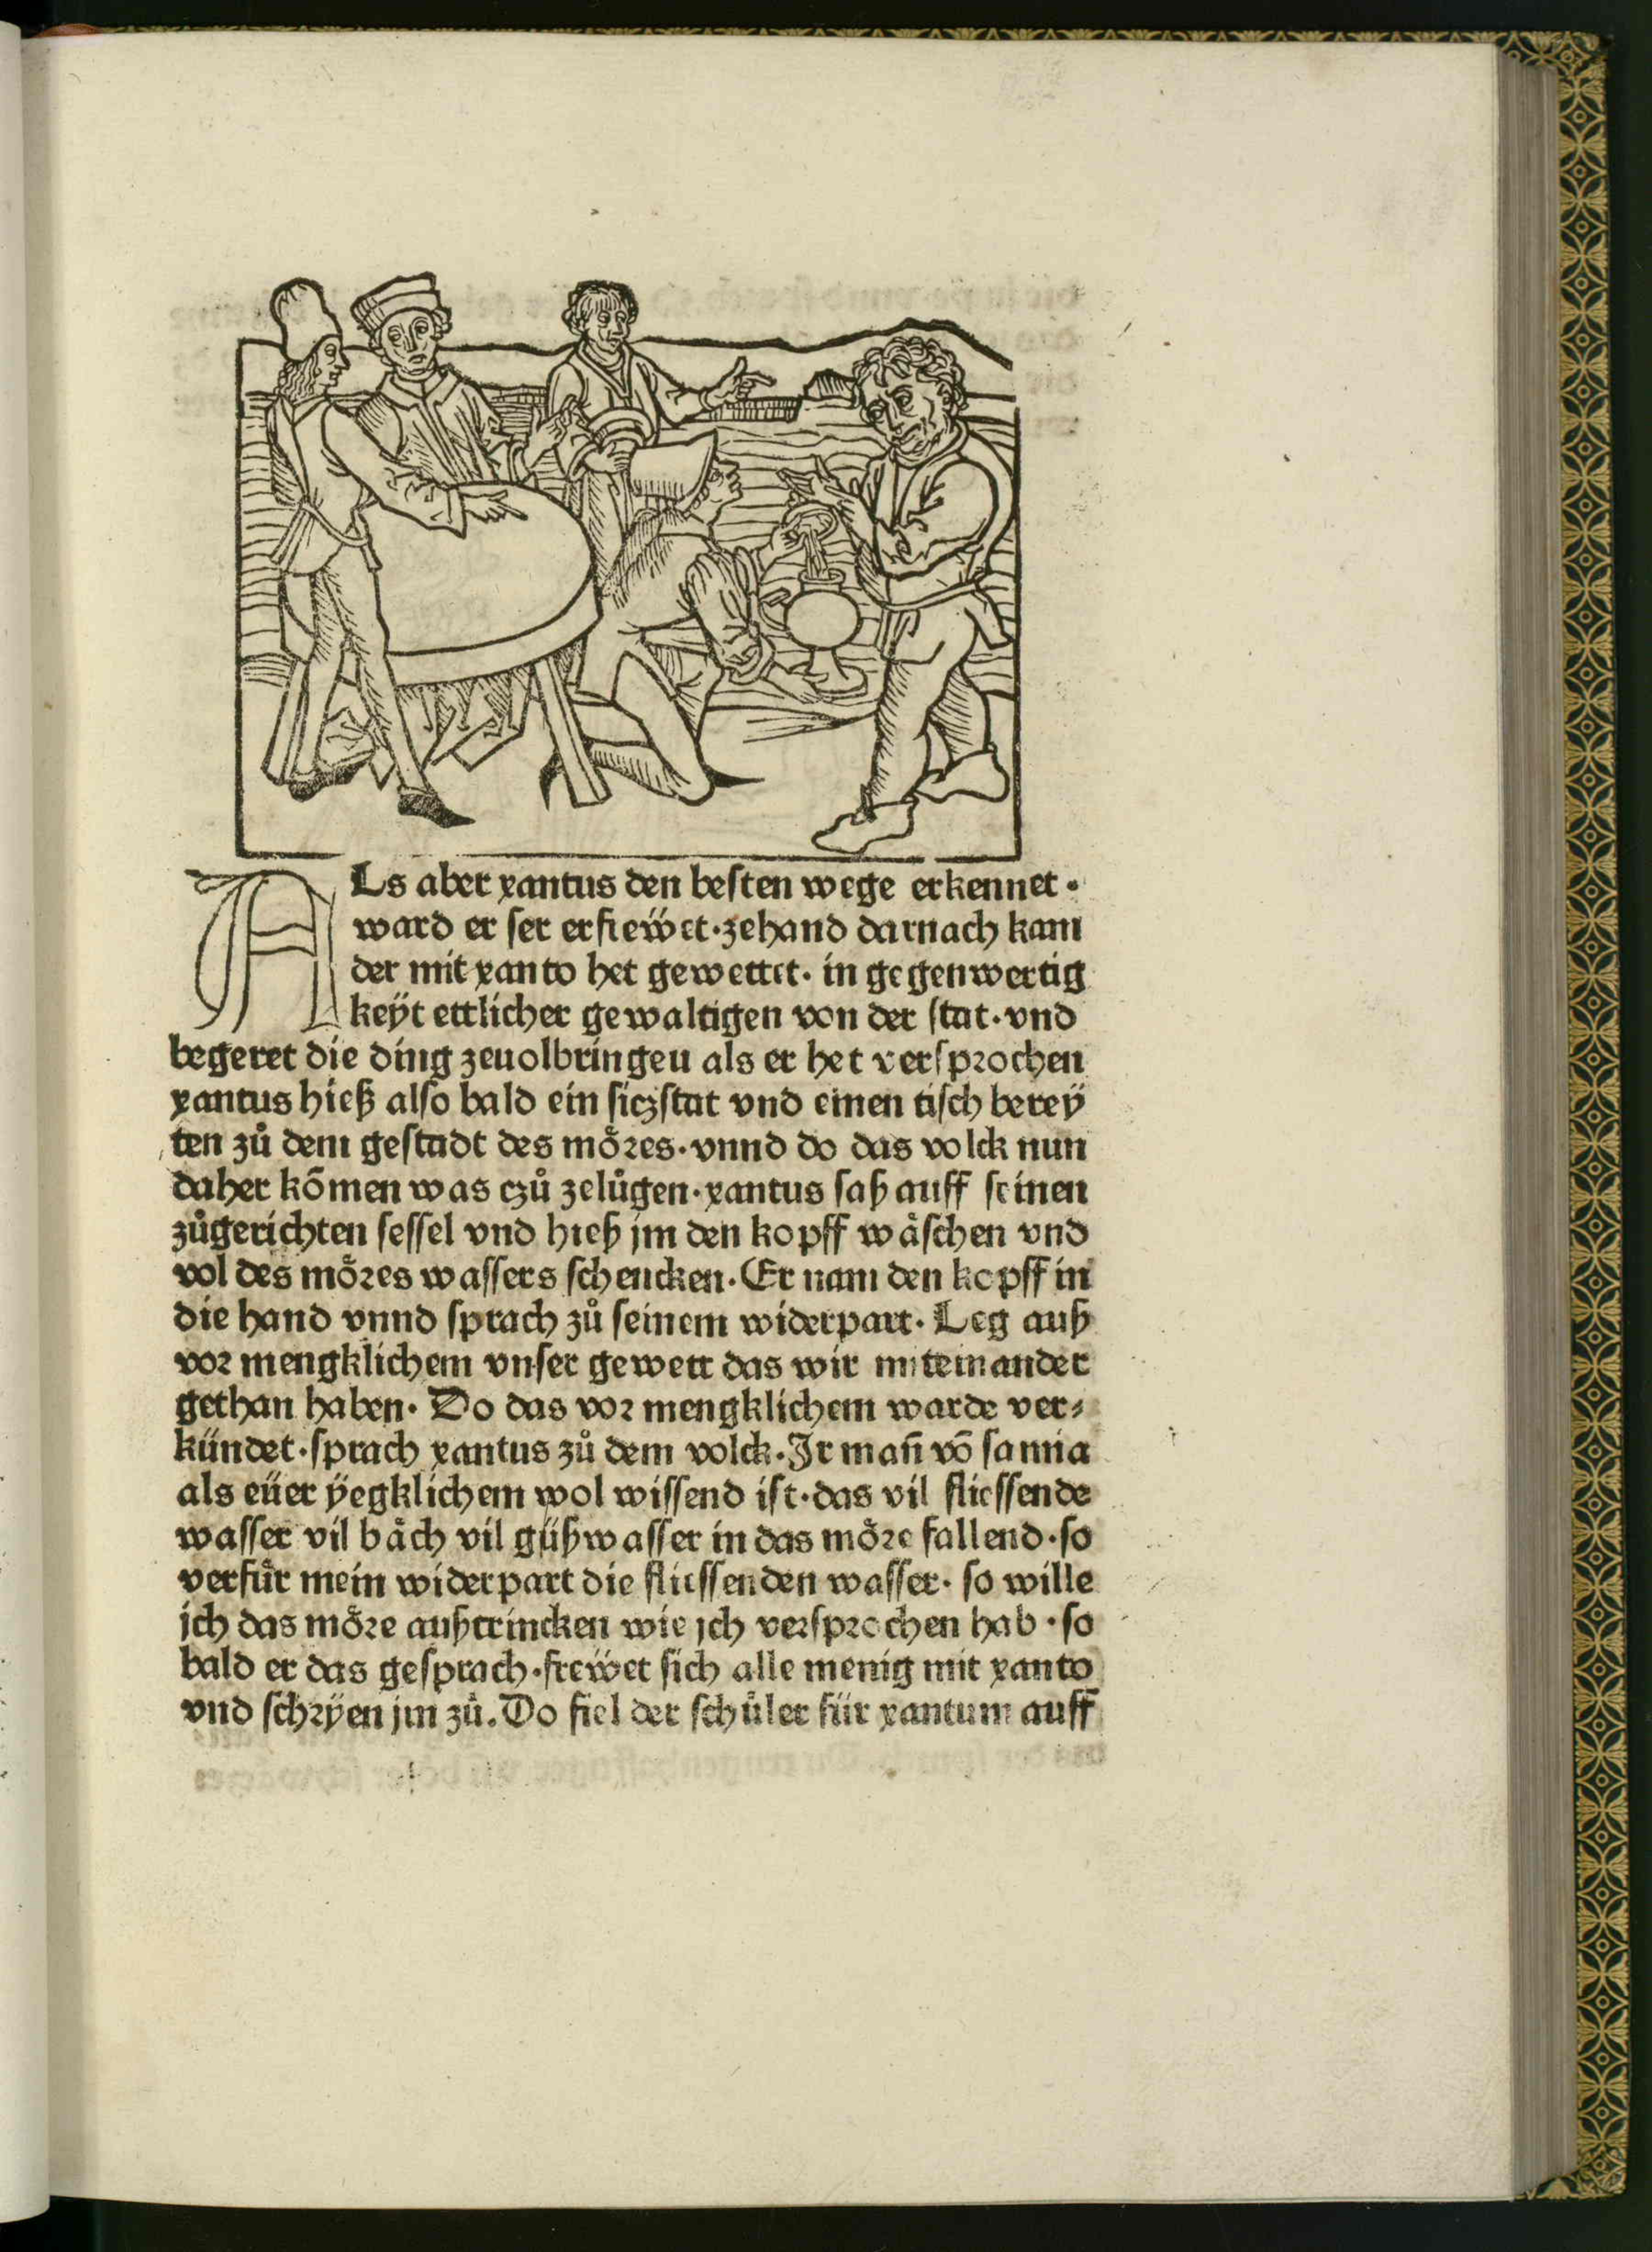 ALs aber xantus den besten wege erkennet·
ward er ser erfrewët·zehand darnach kam
der mit xanto het gewettet· in gegenwertig
keÿt ettlicher gewaltigen von der stat·vnd
begeret die ding zeuolbringen als er het versprochen
xantus hieß also bald ein siczstat vnd einen tisch bereÿ
ten zů dem gestadt des mo᷉res·vnnd do das volck nun
daher kōmen was czů zelůgen·xantus saß auff seinen
zůgerichten sessel vnd hieß jm den kopff waͤschen vnd
vol des moͤres wassers schencken·Er nam den kopff in
die hand vnnd sprach zů seinem widerpart·Leg auß
vor mengklichem vnser gewett das wir miteinander
gethan haben· Do das vor mengklichem warde ver⸗
kündet·sprach xantus zů dem volck·Ir man̄ vō samia
als eüer ÿegklichem wol wissend ist·das vil fliessende
wasser vil baͤch vil güßwasser in das moͤre fallend·so
verfuͤr mein widerpart die fliessenden wasser· so wille
ich das moͤre außtrincken wie jch versprochen hab·so
bald er das gesprach·frewët sich alle menig mit xanto
vnd schrÿen jm zů.Do fiel der schuͤler für xantum auff